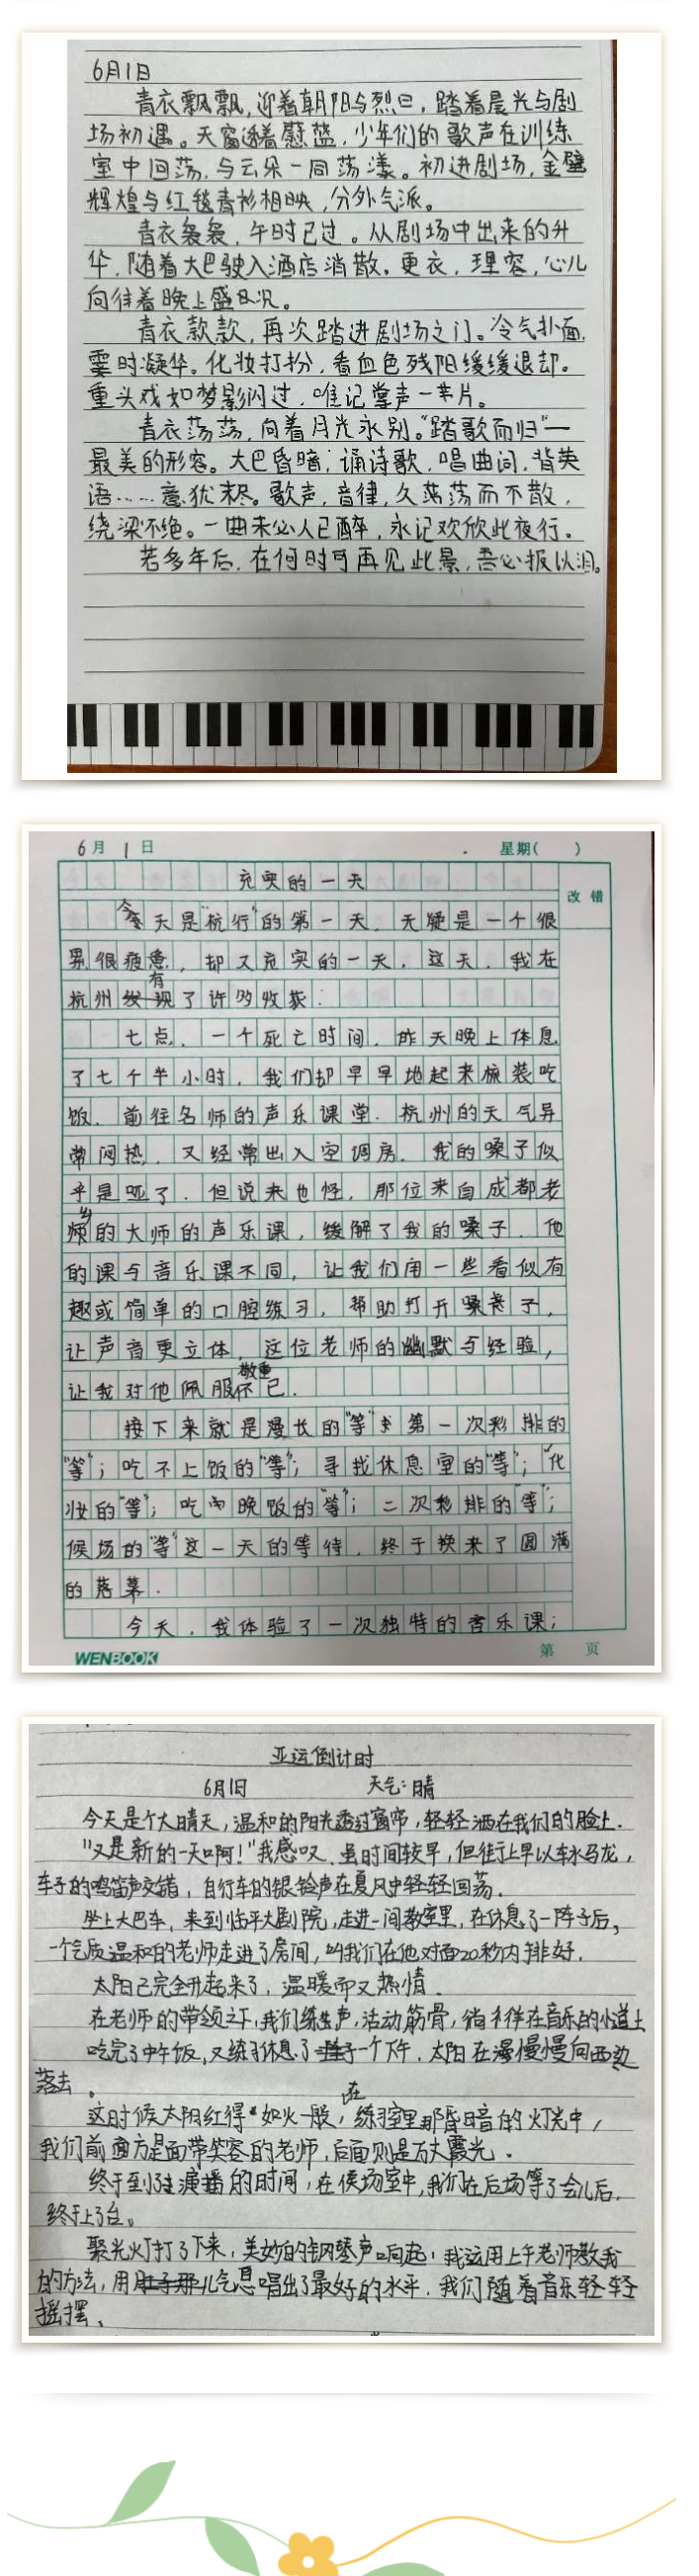 6月1日
青衣飘飘,迎着朝阳与烈日,踏着晨光与剧
场初遇。天窗透着蔚蓝,少年们的歌声在训练
室中回荡,与云朵一同荡漾。初进剧场,金璧
辉煌与红毯青衫相映,分外气派。
青衣袅袅,午时已过。从剧场中出来的升
华,随着大巴驶入酒店消散。更衣,理容,心儿
向往着晚上盛况。
青衣款款,再次踏进剧场之门。冷气扑面,
霎时凝华。化妆打扮,看血色残阳缓缓退却。
重头戏如梦影闪过,唯记掌声一片。
青衣荡荡,向着月光永别。“踏歌而归”—
最美的形容。大巴昏暗,诵诗歌,唱曲词,背英
语……意犹未尽。歌声,音律,久荡荡而不散,
绕梁不绝。一曲未必人已醉,永记欢欣此夜行。
若多年后,在何时可再见此景,吾必报以泪。
6月1日 星期( )
改错
充实的一天
今天是“杭行”的第一天,无疑是一个很
累很疲惫,却又充实的一天,这天,我在
杭州有了许多收获.
七点,一个死亡时间,昨天晚上休息
了七个半小时,我们却早早地起来梳装吃
饭.前往名师的声乐课堂.杭州的天气异
常闷热,又经常出入空调房.我的嗓子似
乎是哑了.但说来也怪,那位来自成都老
乡的大师的声乐课,缓解了我的嗓子.他
的课与音乐课不同,让我们用一些看似有
趣或简单的口腔练习,帮助打开嗓子,
让声音更立体.这位老师的幽默与经验,
让我对他佩服敬重不已.
接下来就是漫长的“等”第一次彩排的
“等”;吃不上饭的“等”;寻找休息室的“等”;化
妆的“等”;吃晚饭的“等”;二次彩排的“等”;
候场的“等”这一天的等待,终于换来了圆满
的落幕.
今天,我体验了一次独特的音乐课;
WENBOOK 第 页
亚运倒计时
6月1日 天气:晴
今天是个大晴天,温和的阳光透过窗帘,轻轻洒在我们的脸上.
“又是新的一天啊!”我感叹.虽时间较早,但街上早以车水马龙,
车子的鸣笛声交错,自行车的银铃声在夏风中轻轻回荡.
坐上大巴车,来到临平大剧院,走进一间教室里,在休息了一阵子后,
一个气质温和的老师走进了房间,叫我们在他对面20秒内排好.
太阳已完全升起来了,温暖而又热情.
在老师的带领之下,我们练声,活动筋骨,徜徉在音乐的小道上
吃完了中午饭,又练习休息了一个下午.太阳在漫慢慢向西边
落去。
这时候太阳红得如火一般,在练习室里那昏暗的灯光中,
我们前方是面带笑容的老师,后面则是万丈霞光.
终于到了演播的时间,在侯场室中,我们在后场等了会儿后,
终于上了台。
聚光灯打了下来,美妙的钢琴声响起,我运用上午老师教我
的方法,用气息唱出了最好的水平.我们随着音乐轻轻
摇摆、